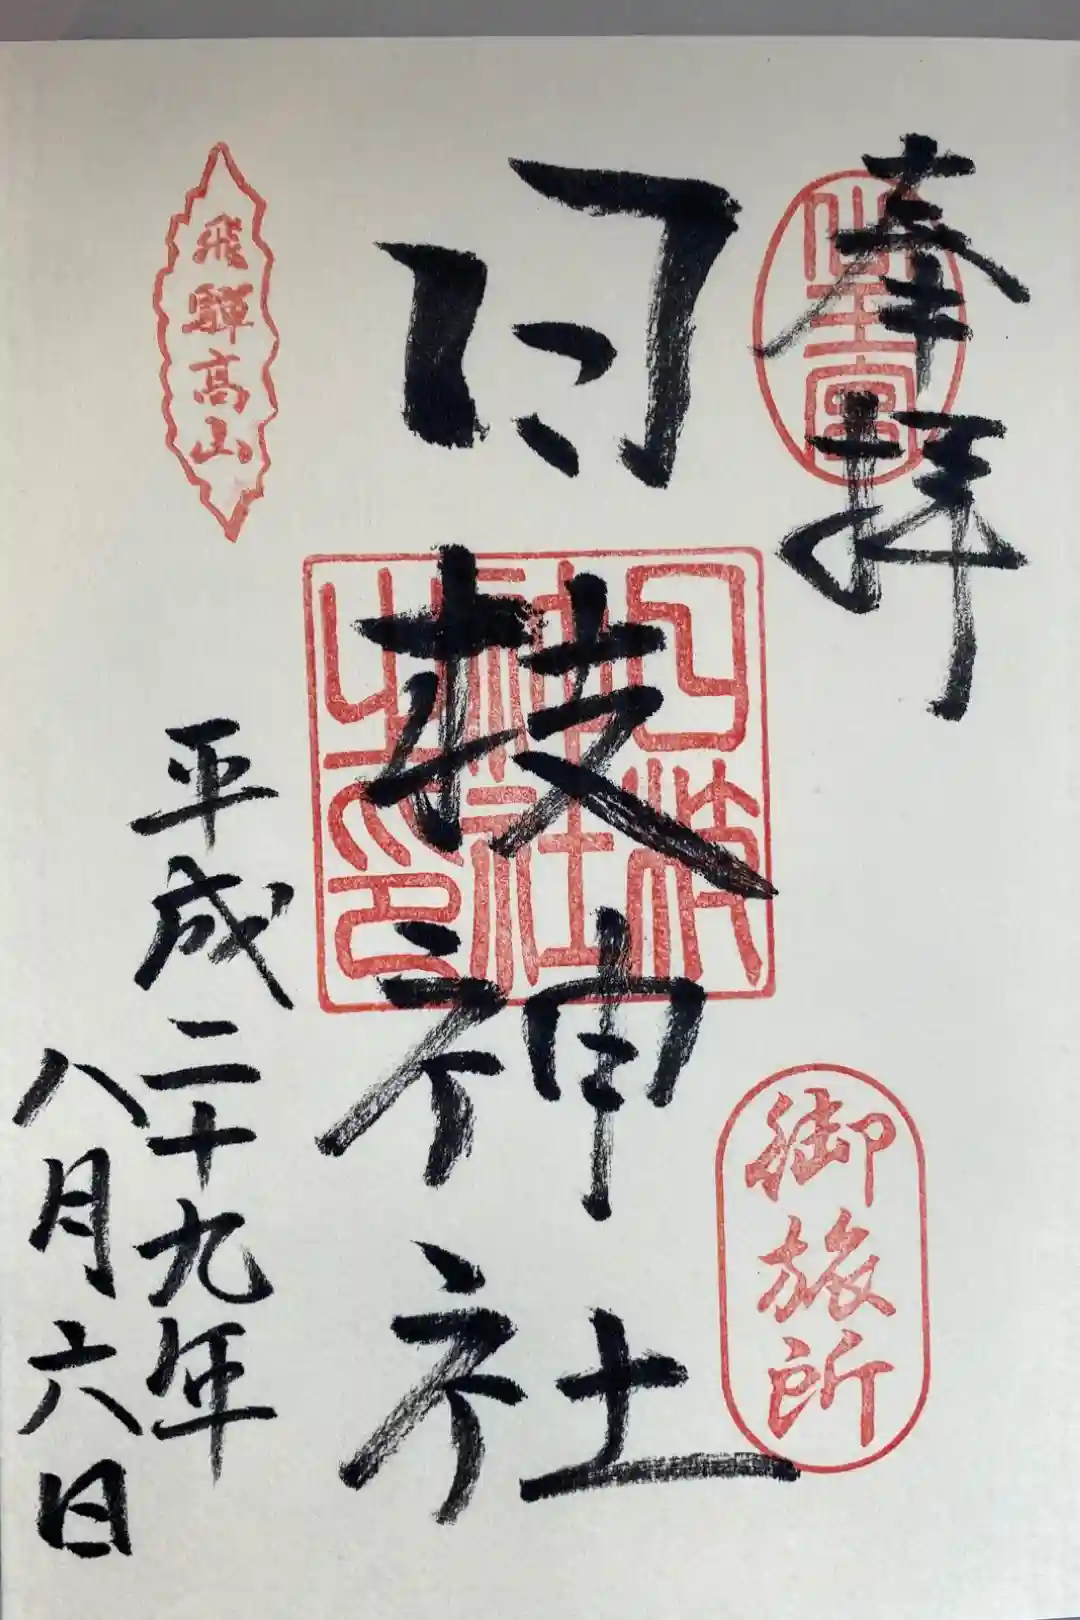 奉拝
山王宮
御旅所
日枝神社
日枝神社之印
飛騨高山
平成二十九年
八月六日